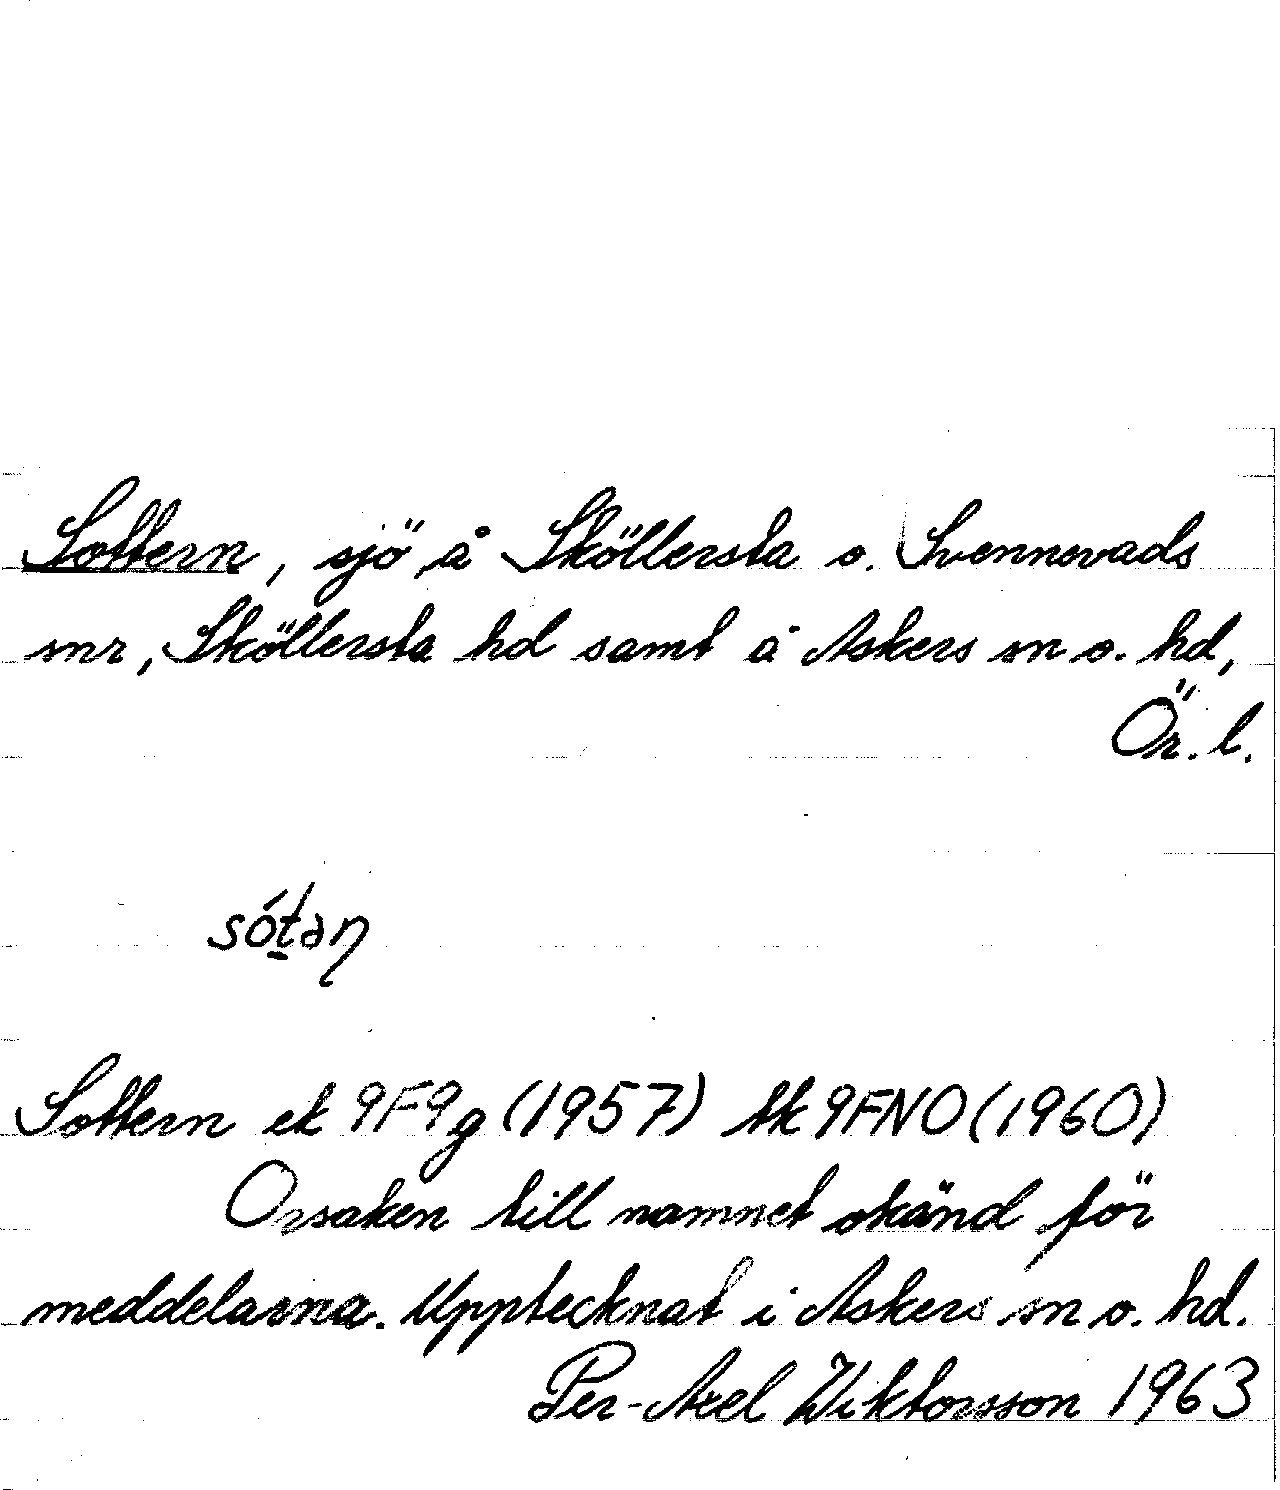 Sottern, sjö, å Sköllersta o. Svennevads
snr, Sköllersta hd samt å Askers sn o. hd,
Ör. l.
sót̲an
Sottern ek 9F9g (1957) tk 9FNO (1960)
Orsaken till namnet okänd för
meddelarna. Upptecknat i Askers sn o. hd.
Per-Axel Wiktorsson 1963